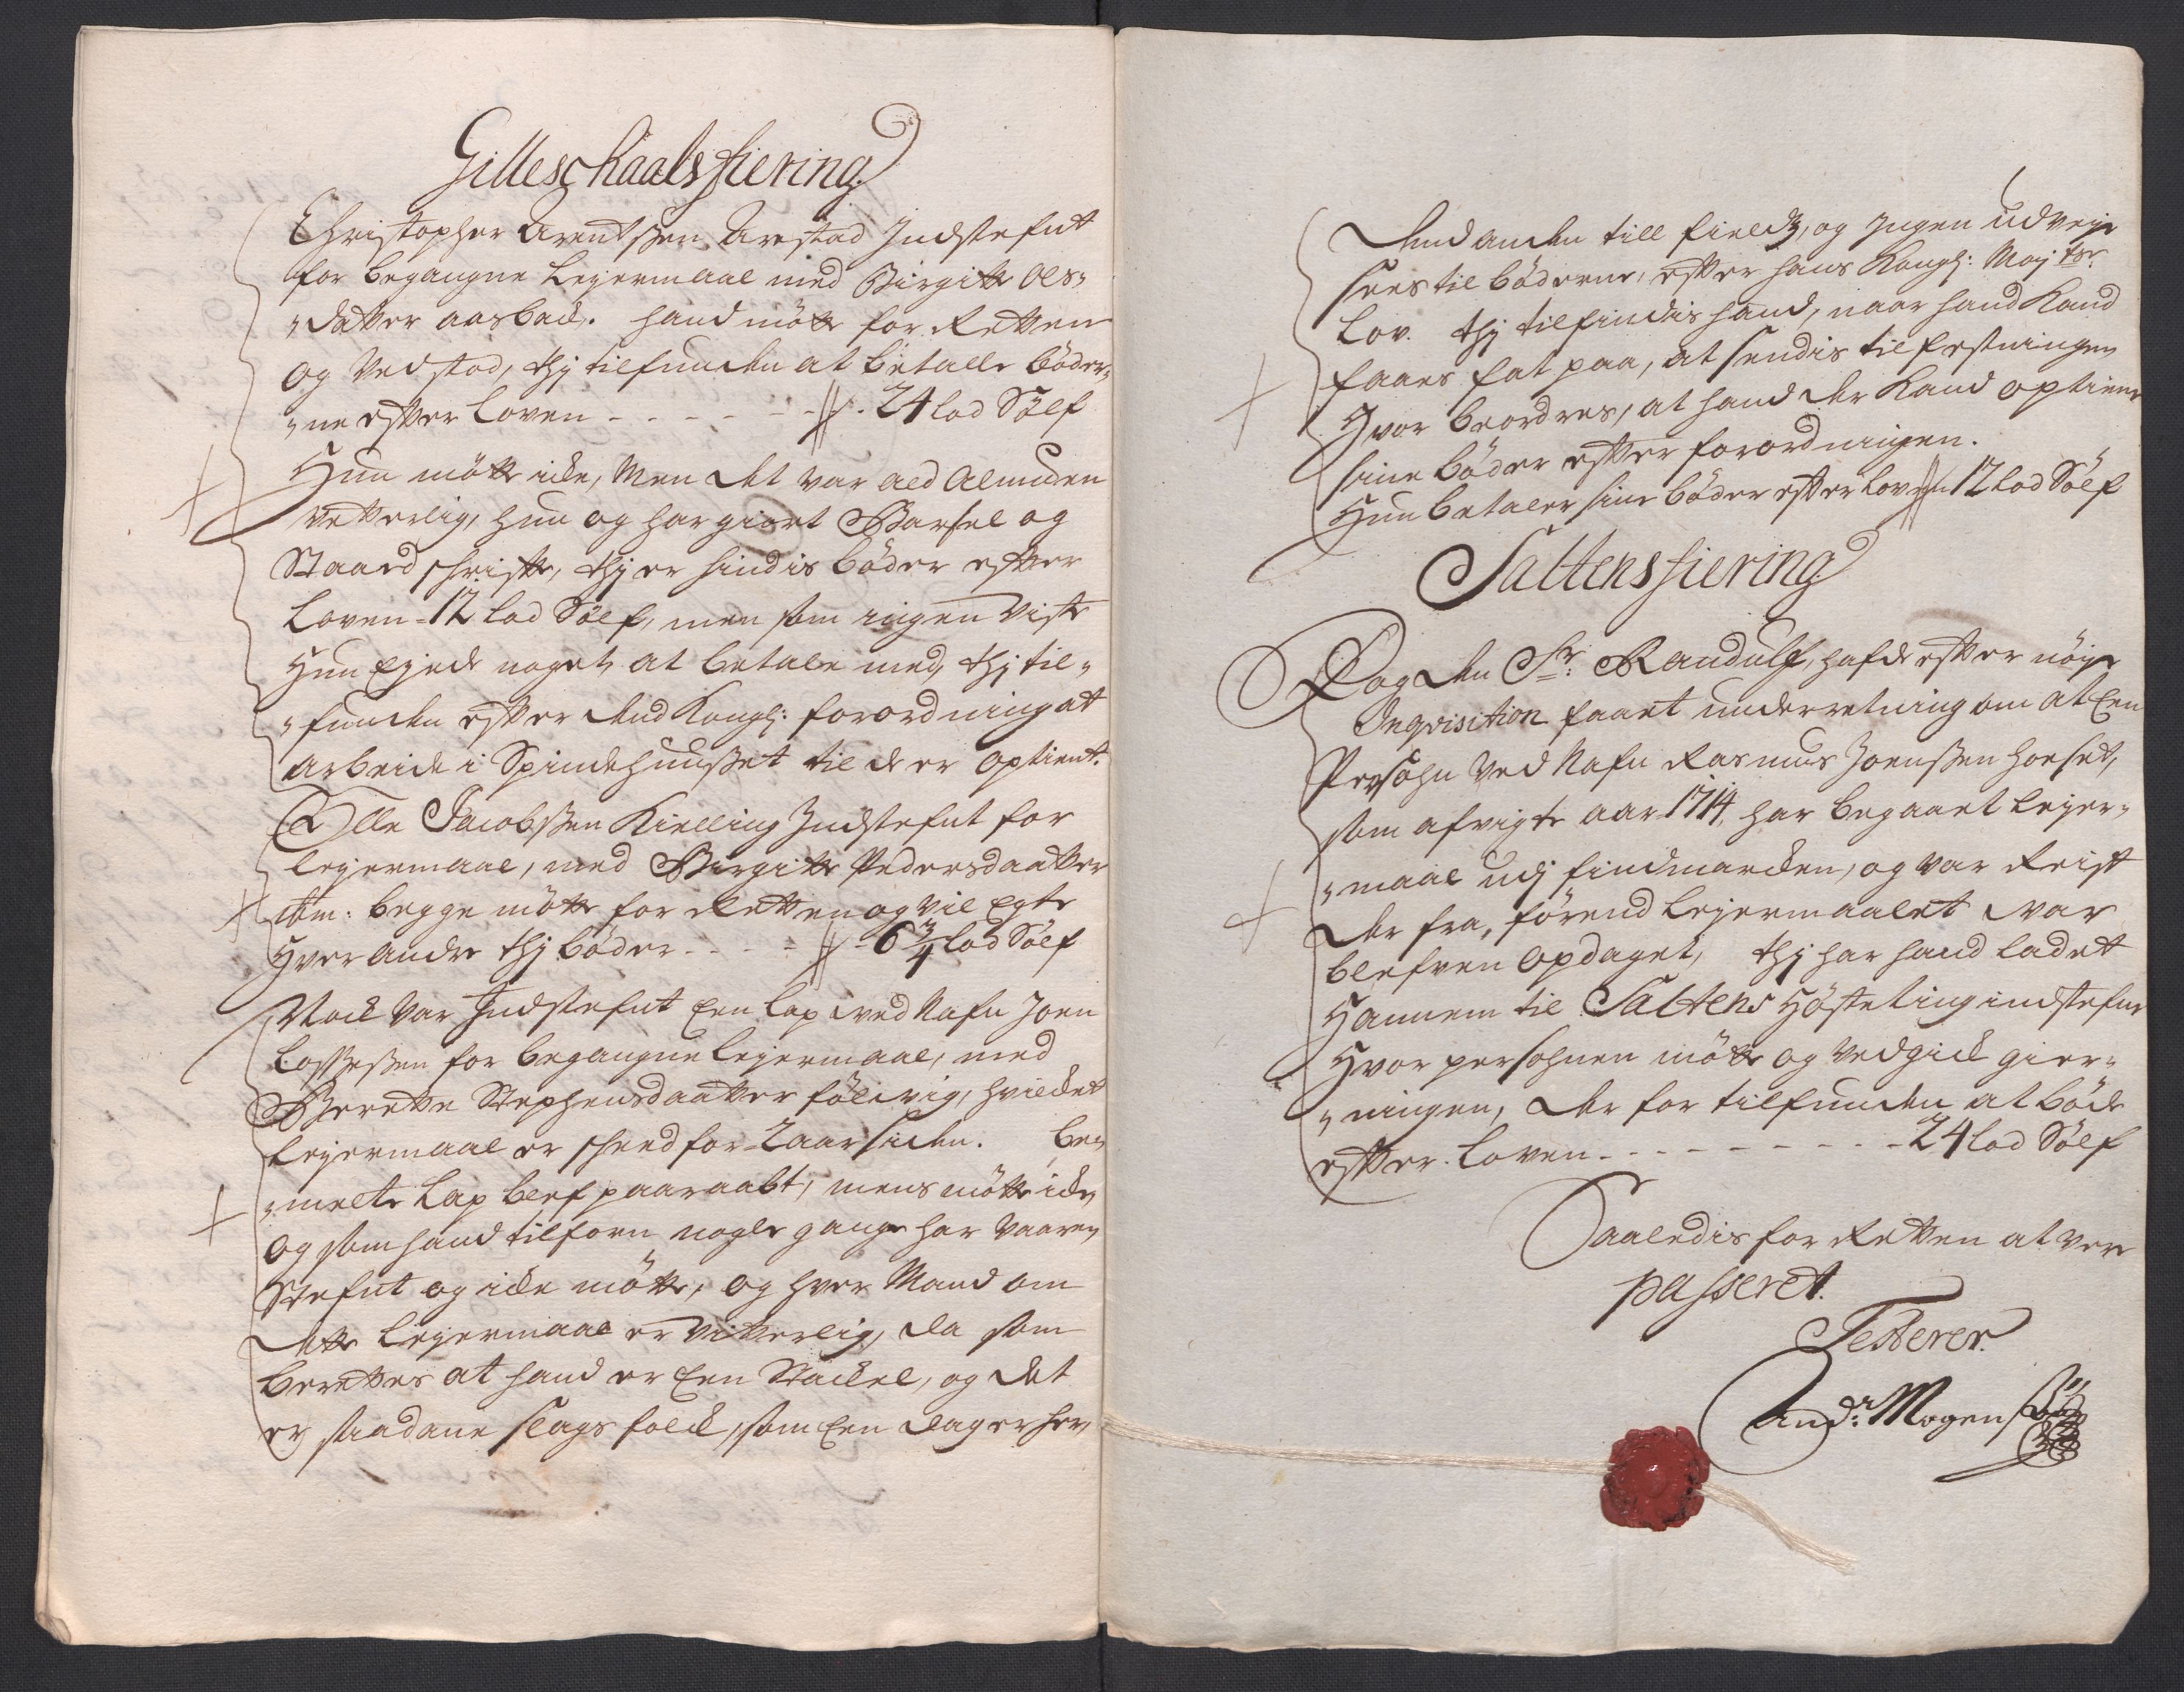 Gilleschaalsfiering
Christopher Arentssen Arestad Indstefnt
for begangne Lejermaal med Birgitte Ols„
„datter Aasbach. hand mötte for Retten
og Vedstod, thj tilfunden at betalle böder„
„ne efter Loven - - - - - - - 24 lod Sölf
Hun mötte icke, Men det var ald Almuen
vetterlig, hun og har giort Barsel og
Staaed schrifte, thj er hindis böder efter
Loven - 12 lod Sölf, men som ingen viste
Hun Ejede noget at betale med, thj til„
„funden efter dend Kongl: forordning at
arbeide i Spindehuusset til de er aftient.
Olle Jacobssen Kielling Indstefnt for
Lejermaal, med Birgitte Pedersdaatter
ibm: begge mötte for Retten og vil Egte
Hver andre thj böder - - - - 6 3/4 lod Sölf
Nock var Indstefnt Een Lap ved Nafn Joen
for begangne Lejermaal, med
Berette Stephensdaatter hvilcket
Lejermaal er scheed for 2 aar siden. be„
„melte Lap blef paaraabt, mens mötte icke,
og som hand tilforn nogle gange har vaaren
Stefnt og icke mötte, og hver Mand om
dette Lejermaal er vitterlig, da som
berettes at hand er Een Stackel, og det
er saadane slags folck, som Een dag er her,
dend anden till fields, og Ingen udveje
sees til böderne, efter hans Kongl: Mayts:
Lov. thj tilfindis hand, naar hand Kand
faaes fat paa, at sendis til festningen
Hvor beordres, at hand der Kand aftiene
sine böder efter forordningen.
Hun betaler sine böder efter Loven 12 lod Sölf
Saltensfiering
Fogden Sr: Randulf, hafde efter nöje
Inqvisition faaet underretning om at Een
Persohn ved Nafn Rasmus Joenssen Horset,
som afvigte aar 1714 har begaaet Lejer„
„maal udj findmarcken, og var Reist
der fra, förend Lejermaalet var
blefven opdaget, thj har hand ladet
Hannem til Saltens Hösteting indstefne
Hvor persohnen mötte og vedgick gier„
„ningen, der for tilfunden at böde
efter Loven - - - - - - - 24 lod Sölf
Saaledis for Retten at vere
passeret.
Testerer
Andr: Mogens